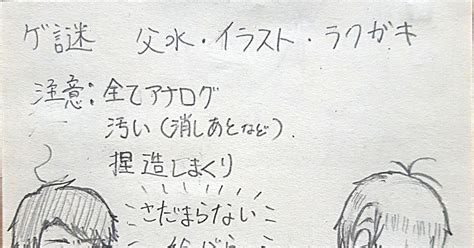 ゲ謎 父水・イラスト・ラクガキ
注意:全てアナログ
汚い(消しあとなど)
捏造しまくり
さだまらない